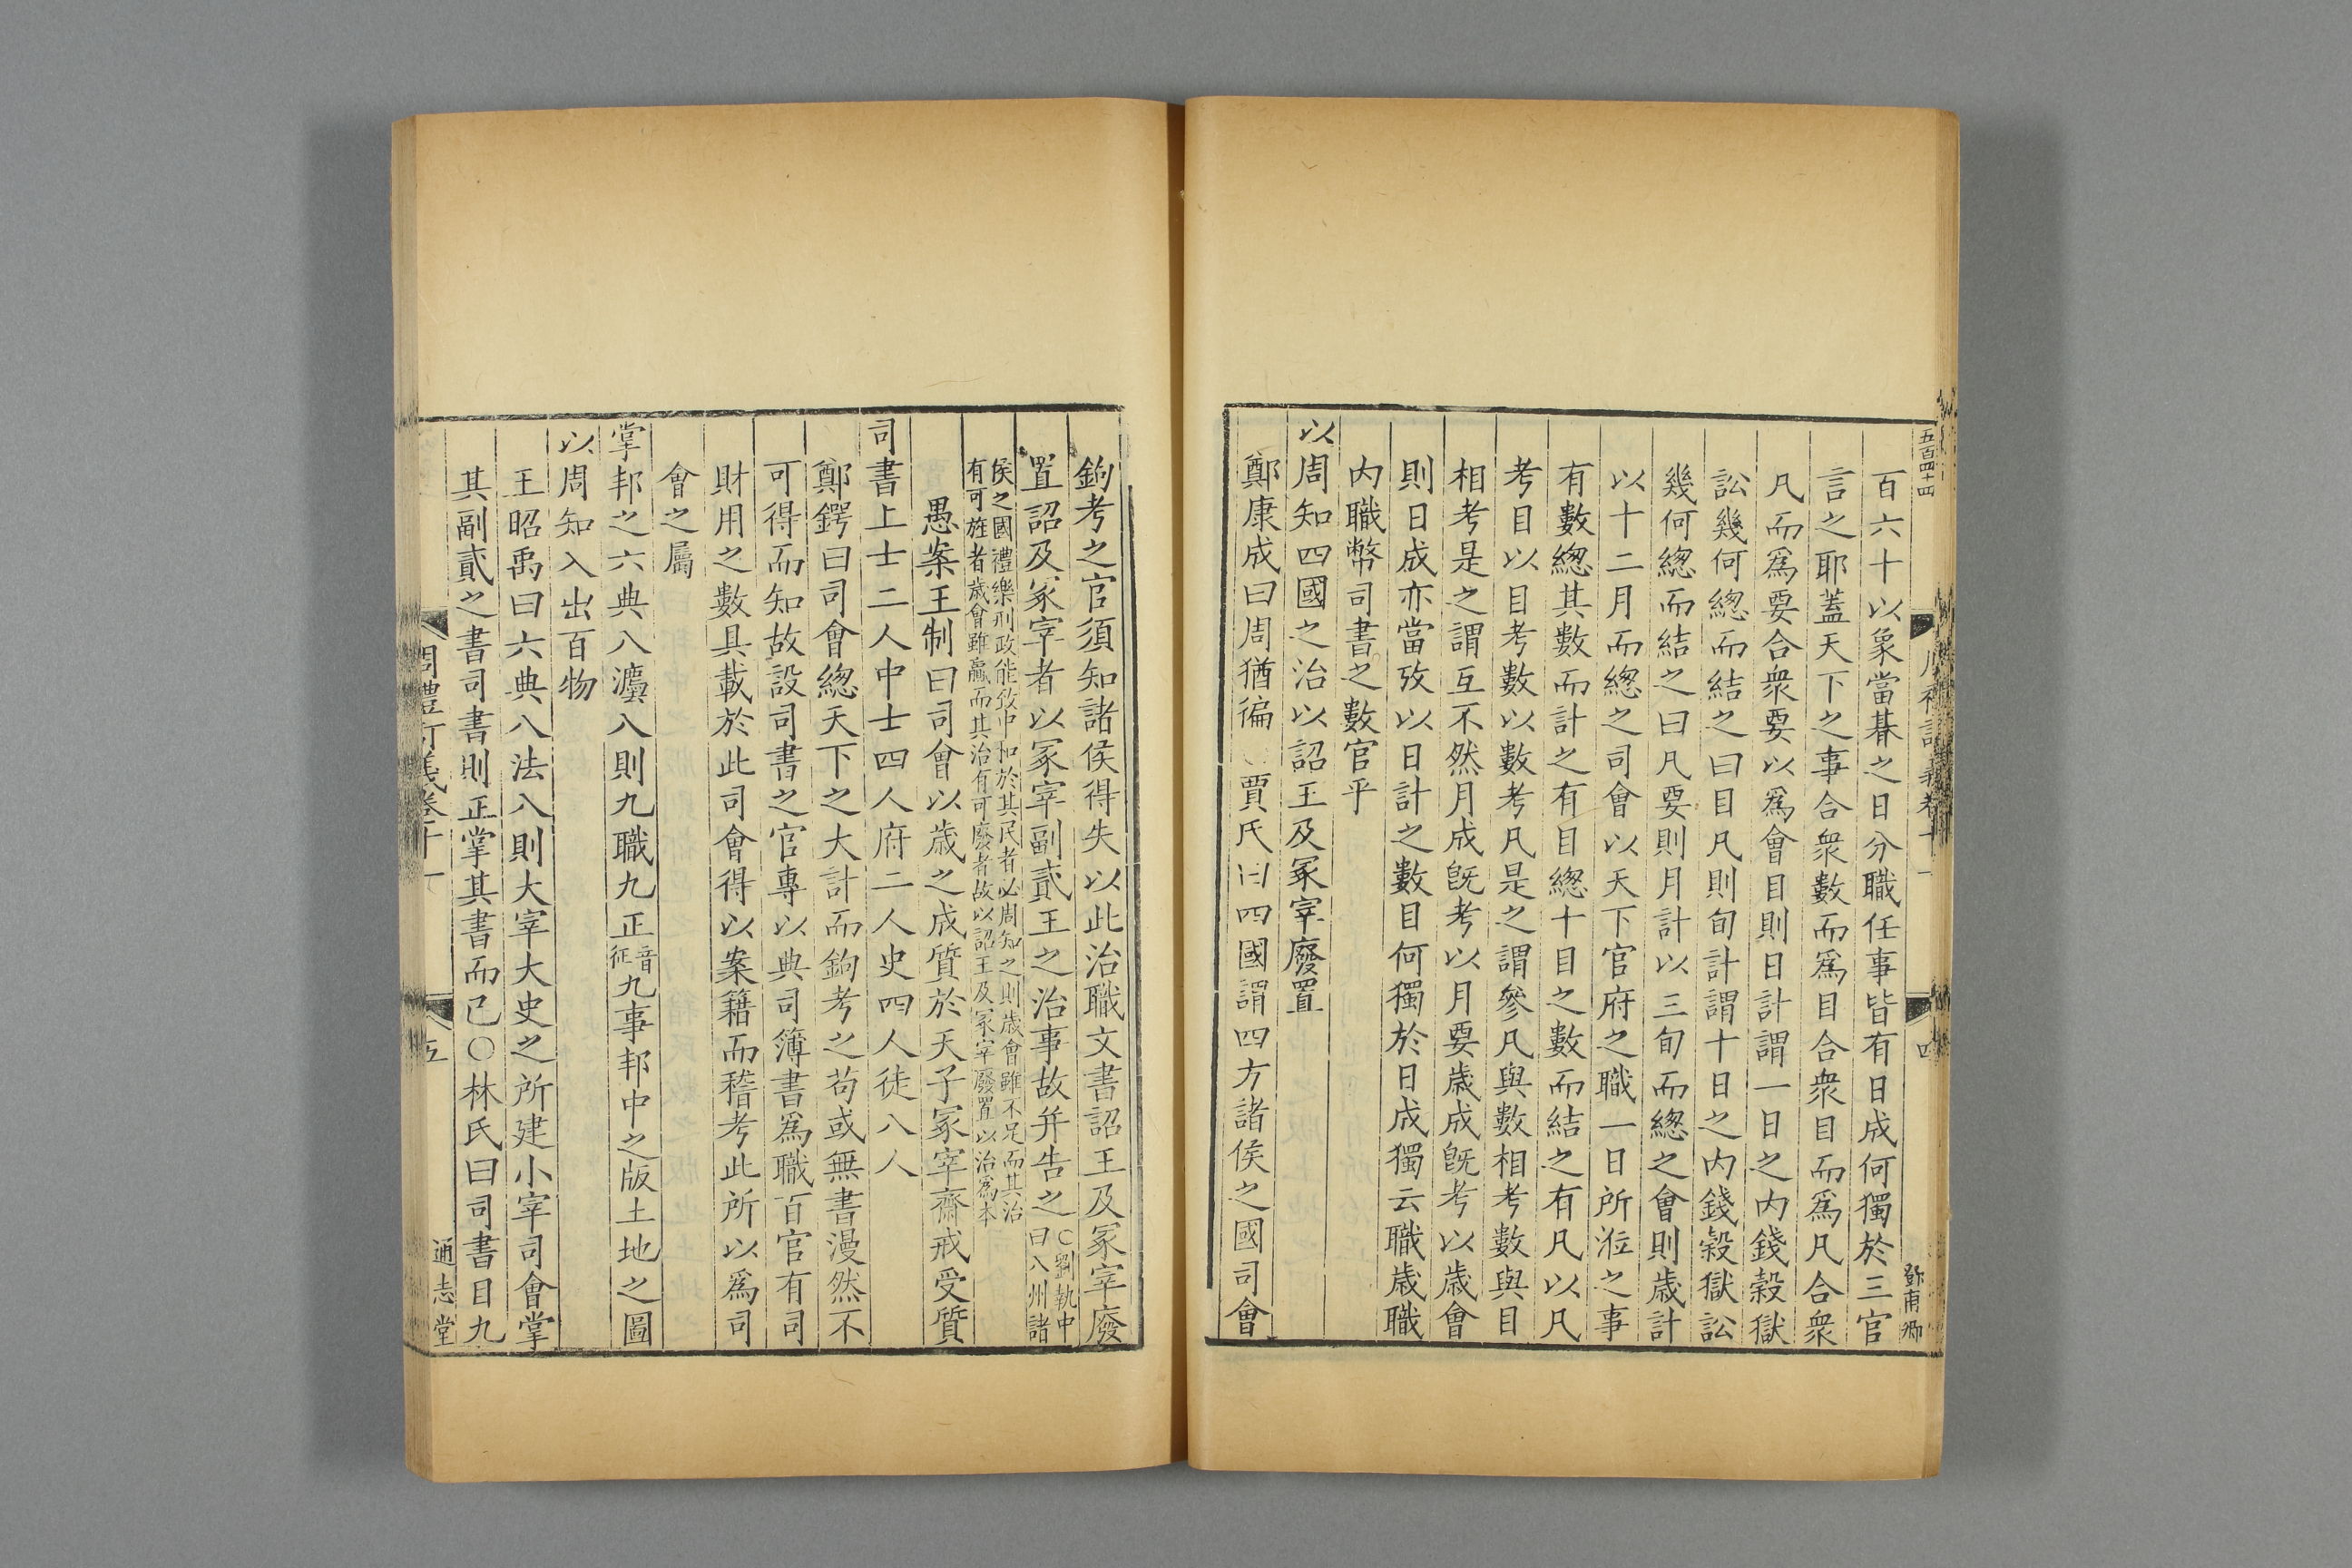 五百四十四
四
鄧甫卿
百六十以象當朞之日分職任事皆有日成何獨於三官
言之耶蓋天下之事合衆數而爲目合衆目而爲凡合衆
凡而爲要合衆要以爲會目則日計謂一日之内錢穀獄
訟幾何總而結之曰目凡則旬計謂十日之内錢穀獄訟
幾何總而結之曰凡要則月計以三旬而總之會則歲計
以十二月而總之司會以天下官府之職一日所涖之事
有數總其數而計之有目總十目之數而結之有凡以凡
考目以目考數以數考凡是之謂參凡與數相考數與目
相考是之謂互不然月成旣考以月要歲成旣考以歲會
則日成亦當攷以日計之數目何獨於日成獨云職歲職
内職幣司書之數官乎
以周知四國之治以詔王及冢宰廢置
鄭康成曰周猶徧 賈氏曰四國謂四方諸侯之國司會
鉤考之官須知諸侯得失以此治職文書詔王及冢宰廢
置詔及冢宰者以冢宰副貳王之治事故并告之○劉執中曰八州諸
侯之國禮樂刑政能致中和於其民者必周知之則歲會雖不足而其治
有可旌者歲會雖贏而其治有可廢者故以詔王及冢宰廢置以治爲本
愚案王制曰司會以歲之成質於天子冢宰齋戒受質
司書上士二人中士四人府二人史四人徒八人
鄭鍔曰司會總天下之大計而鉤考之苟或無書漫然不
可得而知故設司書之官專以典司簿書爲職百官有司
財用之數具載於此司會得以案籍而稽考此所以爲司
會之屬
掌邦之六典八灋八則九職九正音征九事邦中之版土地之圖
以周知入出百物
王昭禹曰六典八法八則大宰大史之所建小宰司會掌
其副貳之書司書則正掌其書而已○林氏曰司書目九
周禮訂義卷十一
五
通志堂